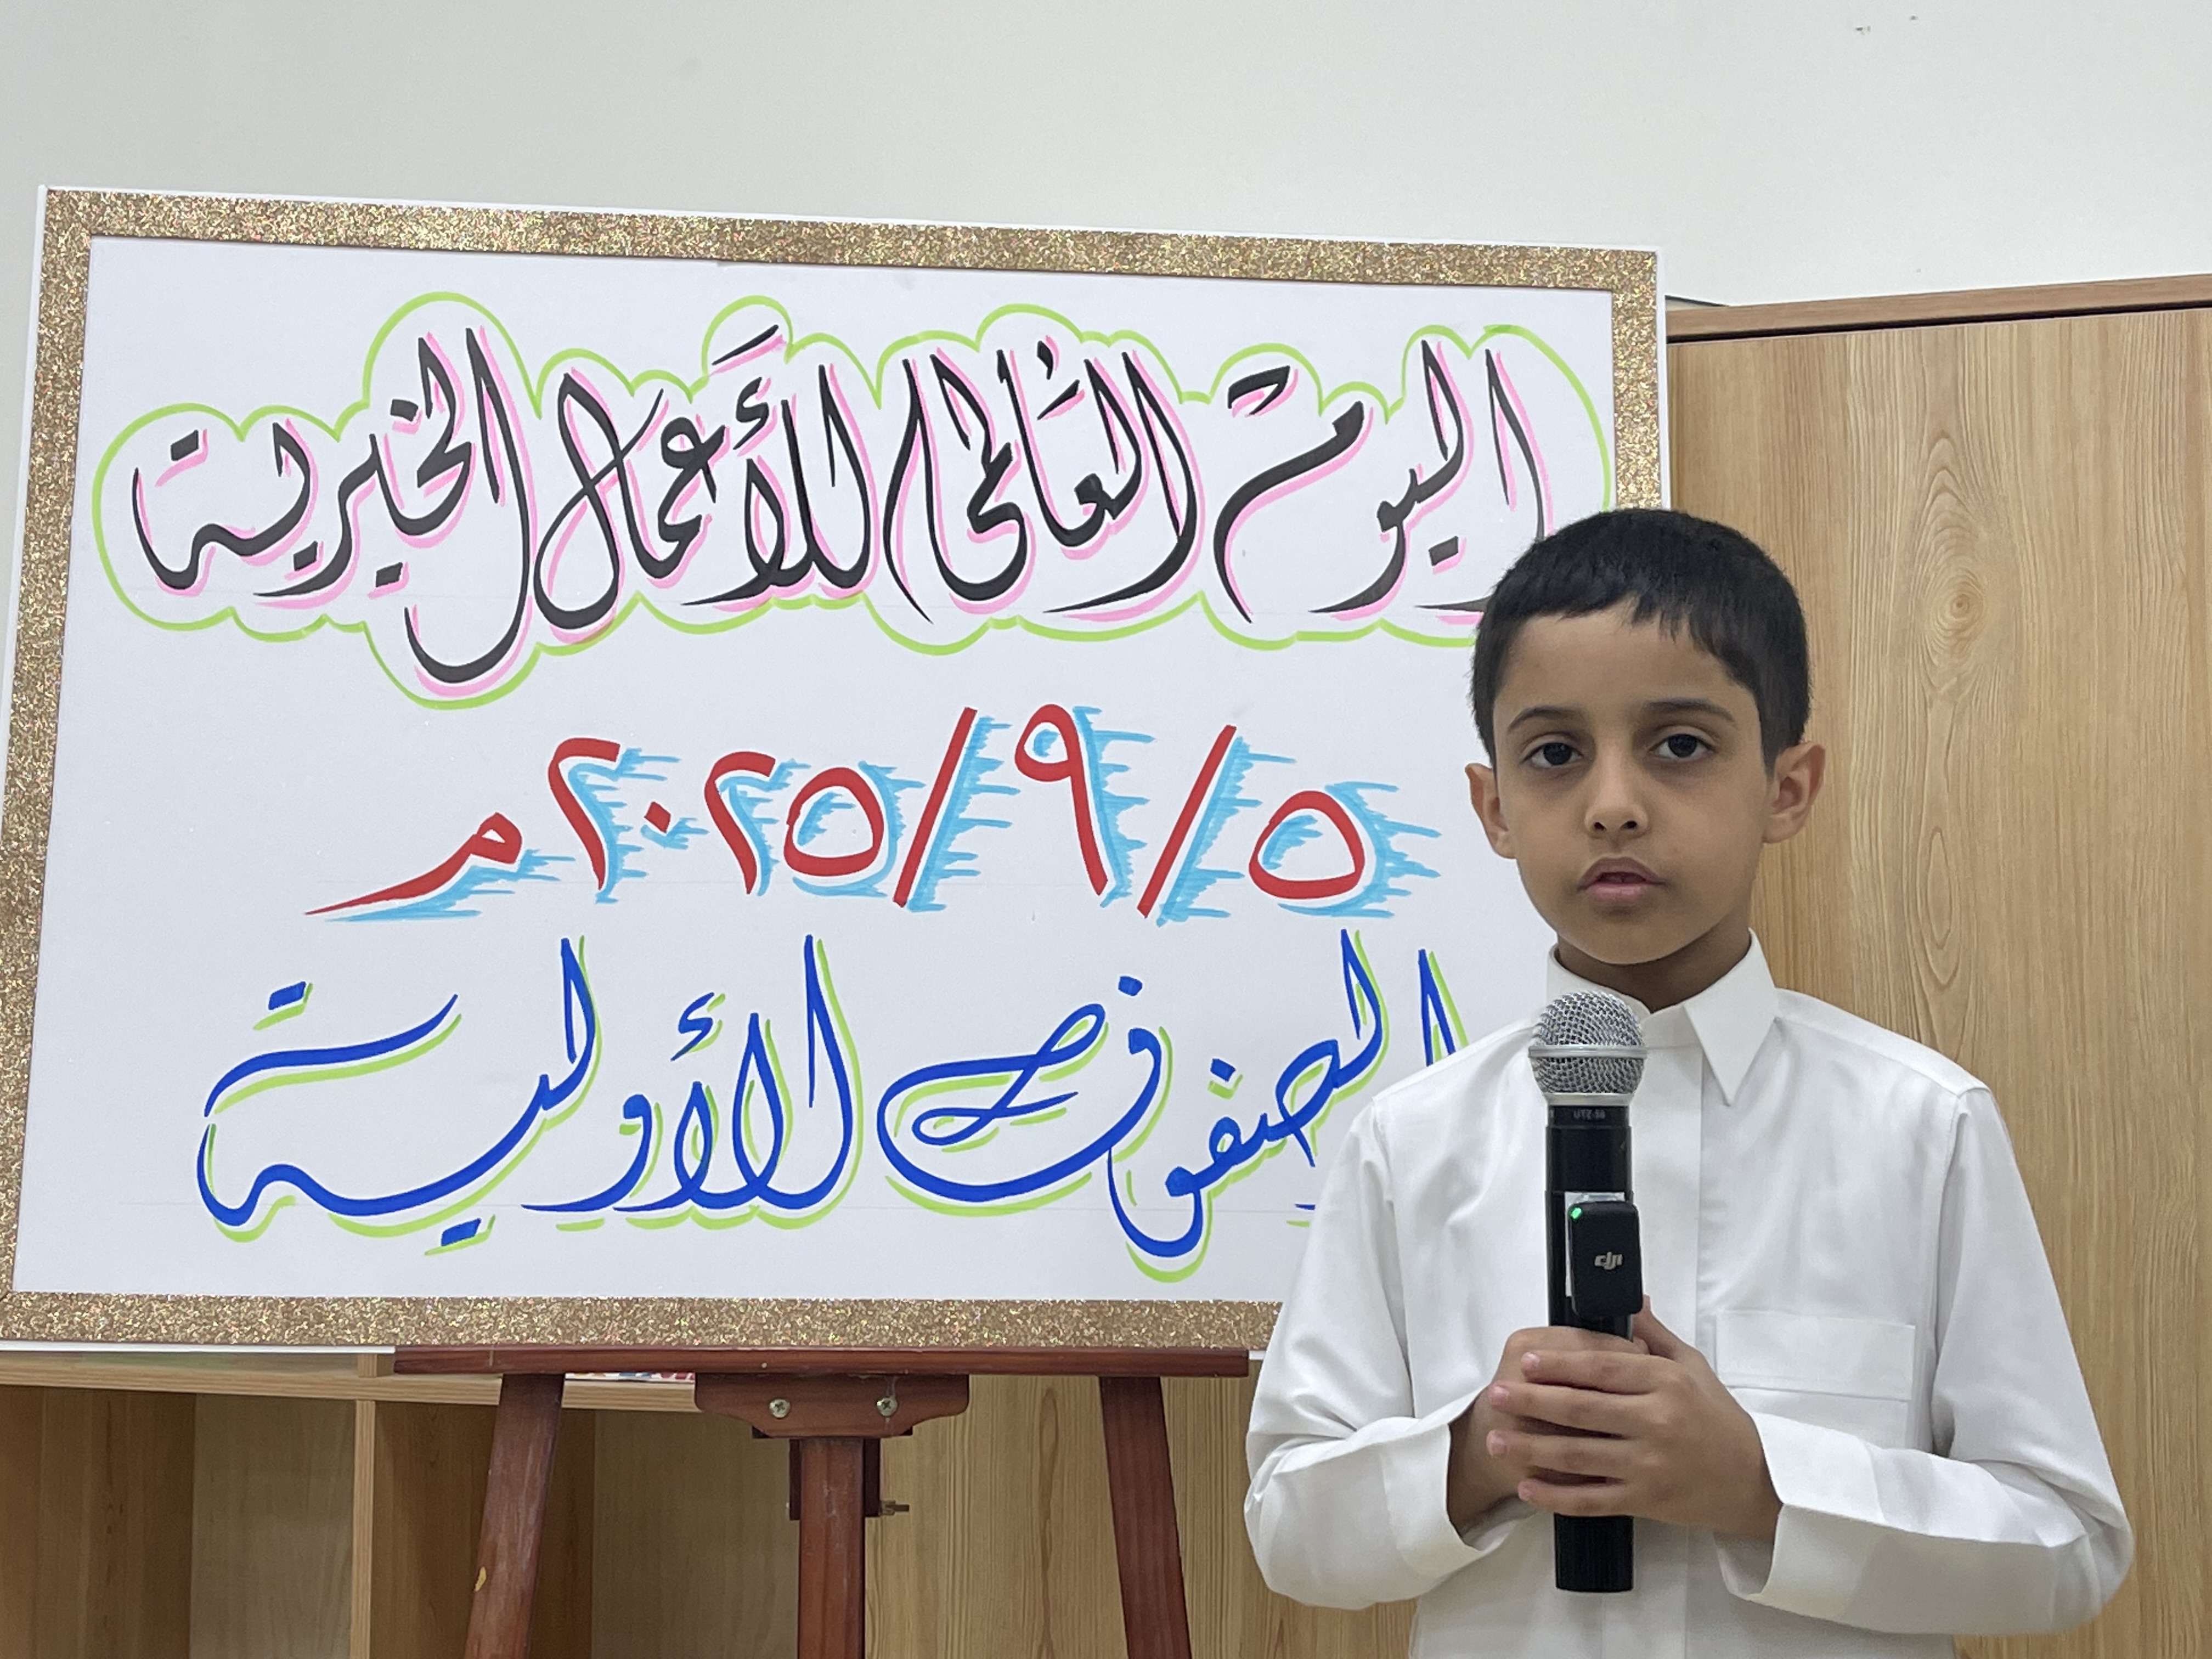 اليوم العالمي للأَعمال الخيرية
٥/٩/٢٠٢٥م
الصفوف الأولية
dji